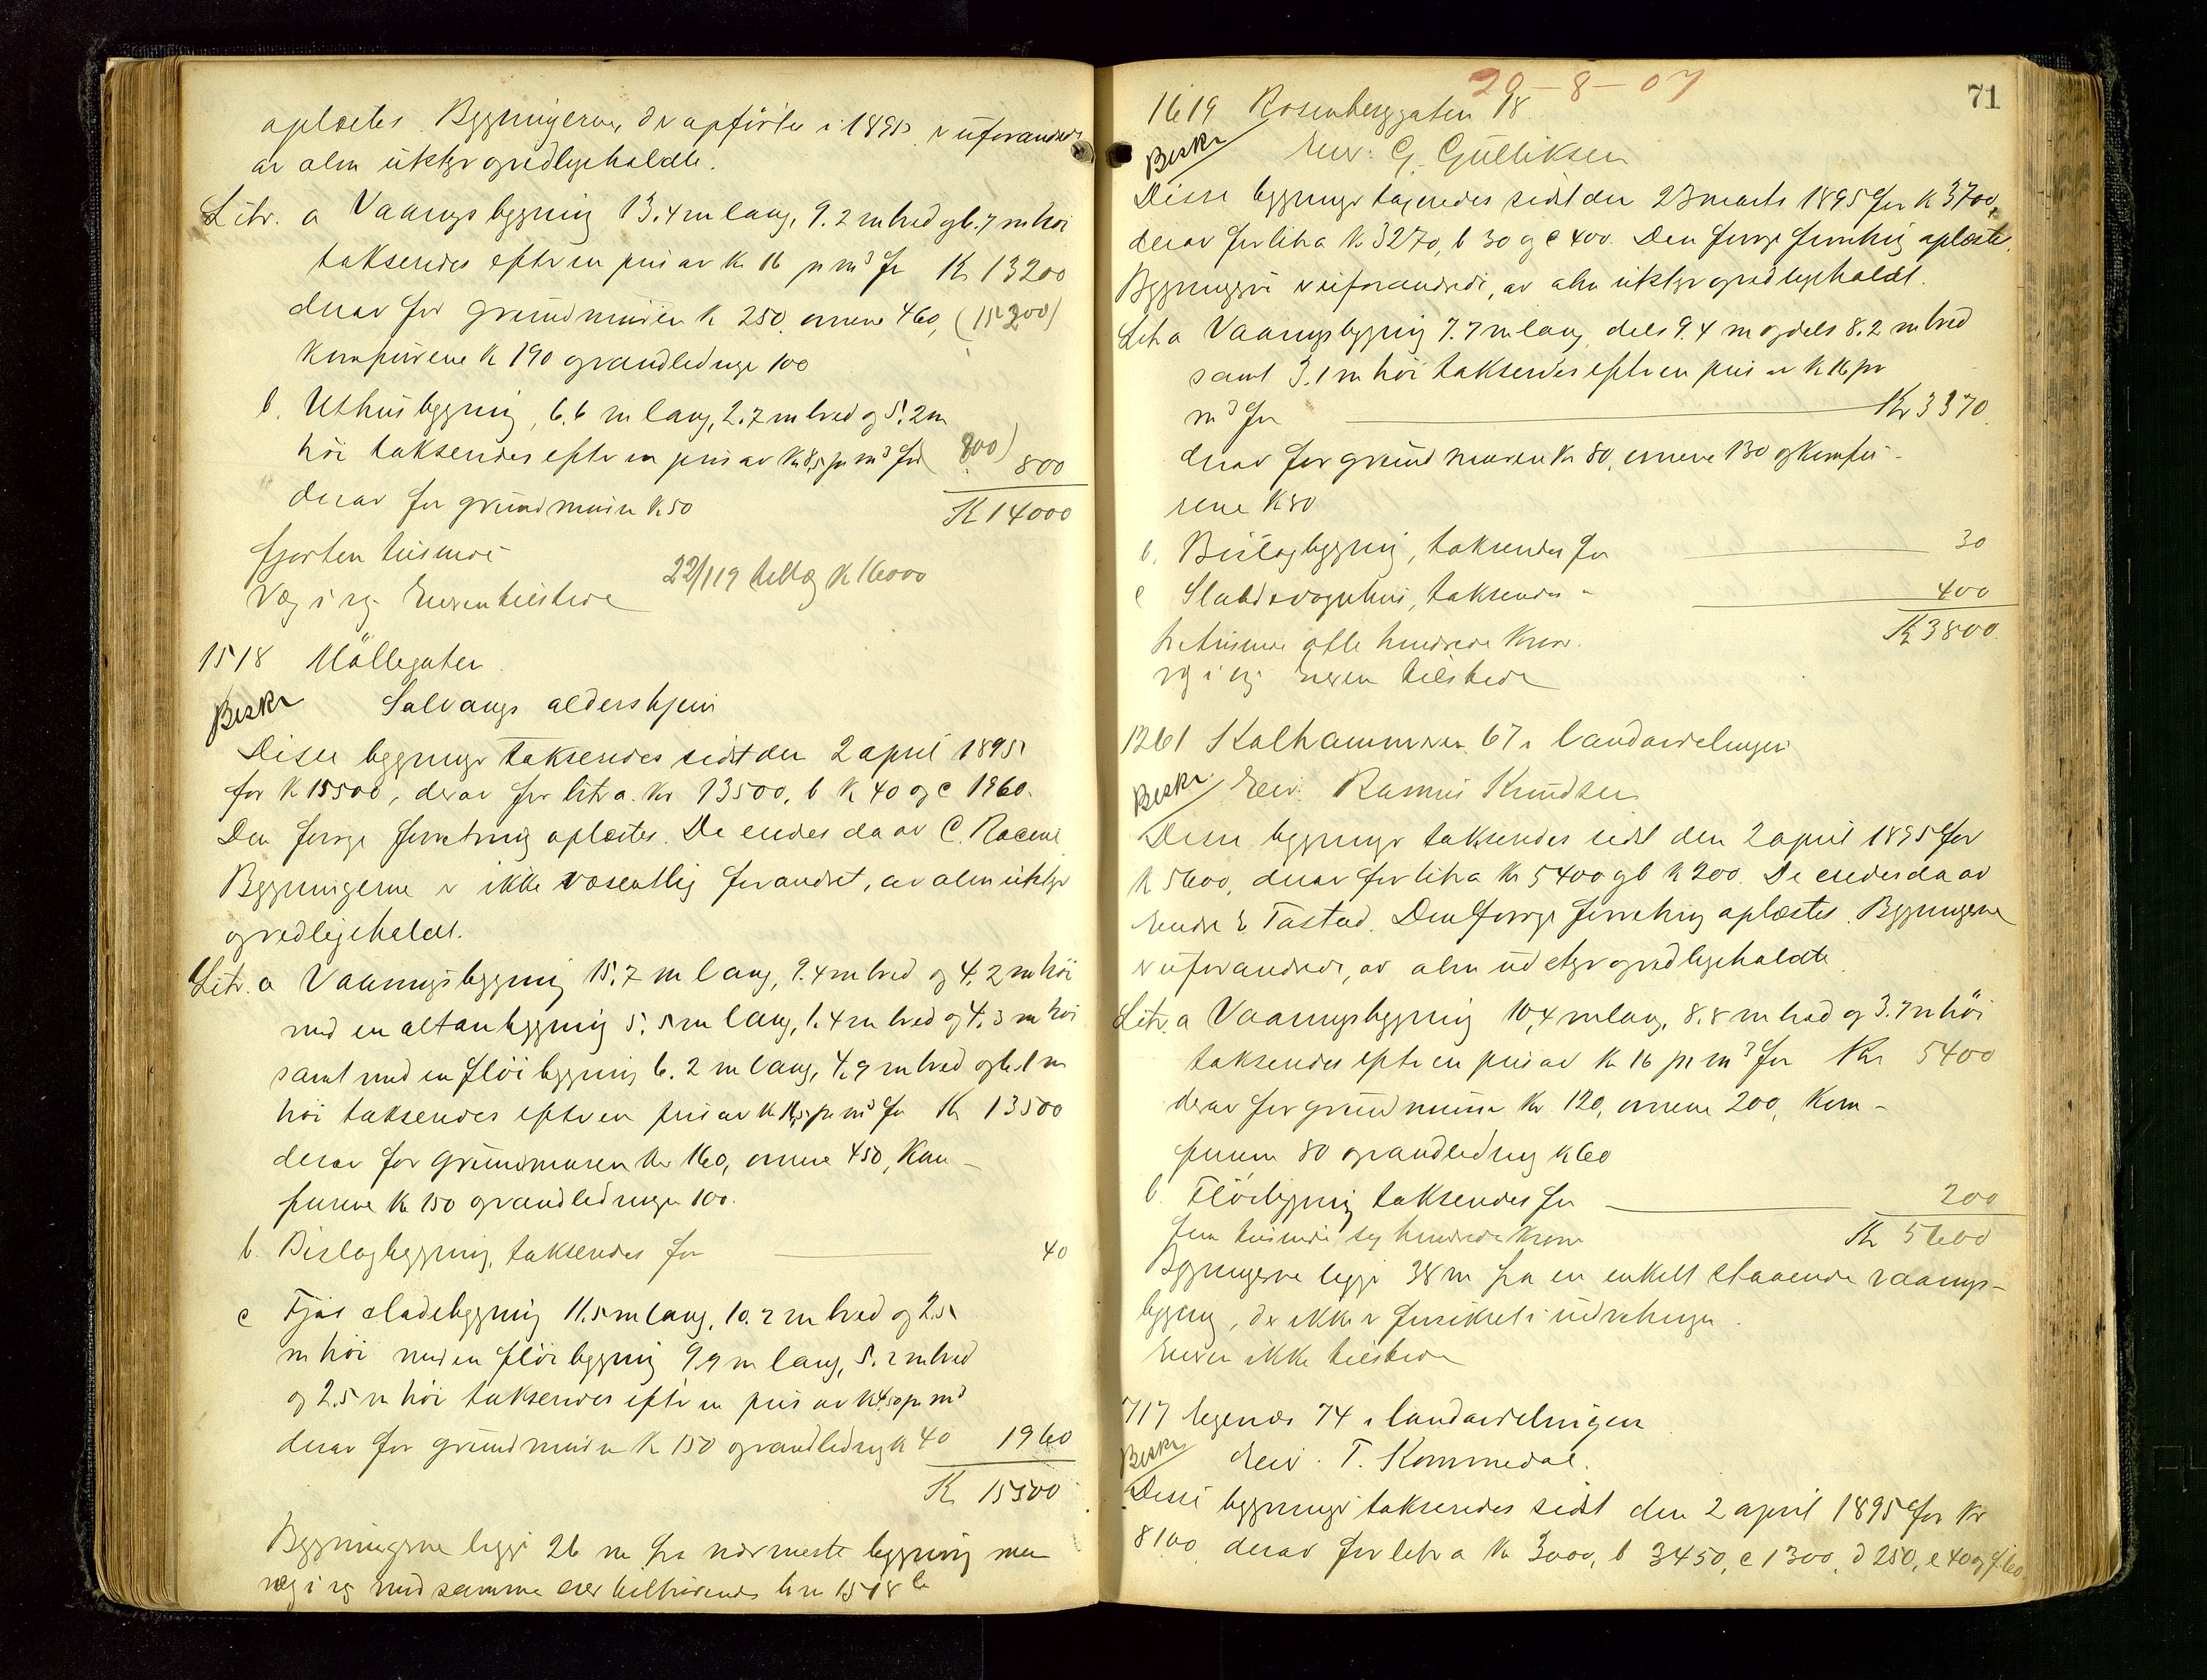 oplæstes. Bygningerne, der opförtes i 1895 er uforandrede
av alm utstyr og vedligeholdt.
Litr. a Vaaningsbygning 13.4 m lang, 9.2 m bred og 6.7 m höi
takseredes efter en pris av Kr 16 pr m³ for Kr 13200
derav for grundmuren Kr 250, ovnene 460, (15200)
Komfurene Kr 190 og vandledninge 100
b. Uthusbygning, 6.6 m lang, 2.7 m bred og 5.2 m
höi takseredes efter en pris av Kr 8,5 pr m³ for (800) 800
derav for grundmuren Kr 50 Kr 14000
fjorten tusinde
Væg i væg. Eieren tilstede 22/119 tillæg Kr 16000
1518 Möllegaten
Beskr Solvangs aldershjem
Disse bygninger takseredes sidst den 2 april 1895
for Kr 15500, derav for litr a. Kr 13500, b Kr 40 og c 1960.
Den forrige forretning oplæstes. De eiedes da av C. Racine
Bygningerne er ikke væsentlig forandret, av alm utstyr
og vedligeholdt.
Litr. a Vaaningsbygning 15.7 m lang, 9.4 m bred og 4.2 m höi
med en altanbygning 5.5 m lang, 1.4 m bred og 4.3 m höi
samt med en flöibygning 6.2 m lang, 4.9 m bred og 6.1 m
höi takseredes efter en pris av Kr 16,5 pr m³ for Kr 13500
derav for grundmuren Kr 160, ovnene 450, Kom-
furene Kr 150 og vandledningen 100.
b. Bislagbygning, takseredes for 40
c Fjös & ladebygning 11.5 m lang, 10.2 m bred og 2.5
m höi med en flöibygning 9,9 m lang, 5.2 m bred
og 2.5 m höi takseredes efter en pris av Kr 4.50 pr m³
derav for grundmuren Kr 150 og vandledning Kr 40 1960
Kr 15500
Bygningerne ligger 26 m fra nærmeste bygning men
væg i væg med samme eier tilhörende br no 1518 b
29-8-07
71
1619 Rosenberggaten 18.
Beskr Eier: G. Gulliksen
Disse bygninger taxeredes sidst den 23 marts 1895 for Kr 3700,
derav for litr a Kr 3270, b 30 og c 400. Den forrige forretning oplæstes.
Bygningerne er uforandrede, av alm utstyr og vedligeholdt.
Litr. a Vaaningsbygning 7.7 m lang, dels 9.4 m og dels 8.2 m bred
samt 3.1 m höi takseredes efter en pris av Kr 16 pr
m³ for Kr 3370
derav for grundmuren Kr 80, ovnene 130 og Komfu-
rene Kr 80
b. Bislagbygning, takseredes for 30
c Stald & vognhus, takseredes " 400
tretusinde otte hundrede Kroner. Kr 3800
væg i væg Eieren tilstede
1261 Kalhammeren 67 i landavdelingen
Beskr. Eier: Rasmus Knudsen
Disse bygninger takseredes sidst den 2 april 1895 for
Kr 5600, derav for litr a Kr 5400 og b Kr 200. De eiedes da av
Endre E Tastad. Den forrige forretning oplæstes. Bygningerne
er uforandrede, av alm udstyr og vedligeholdte
Litr. a Vaaningsbygning 10,4 m lang, 8.8 m bred og 3.7 m höi
takseredes efter en pris av Kr 16 pr m³ for Kr 5400
derav for grundmuren Kr 120, ovnene 200, Kom-
furene 80 og vandledning Kr 60
b. Flöibygning takseredes for 200
fem tusinde sex hundrede Kroner Kr 5600
Bygningerne ligger 38 m fra en enkelt staaende vaanings-
bygning, der ikke er forsikret i indretningen.
Eieren ikke tilstede
717 Egenæs 74 i landavdelingen
Beskr Eier: T. Kommedal.
Disse bygninger takseredes sidst den 2 april 1895 for Kr
8100, derav for litr a Kr 3000, b 3450, c 1300, d 250, e 40 og f 60